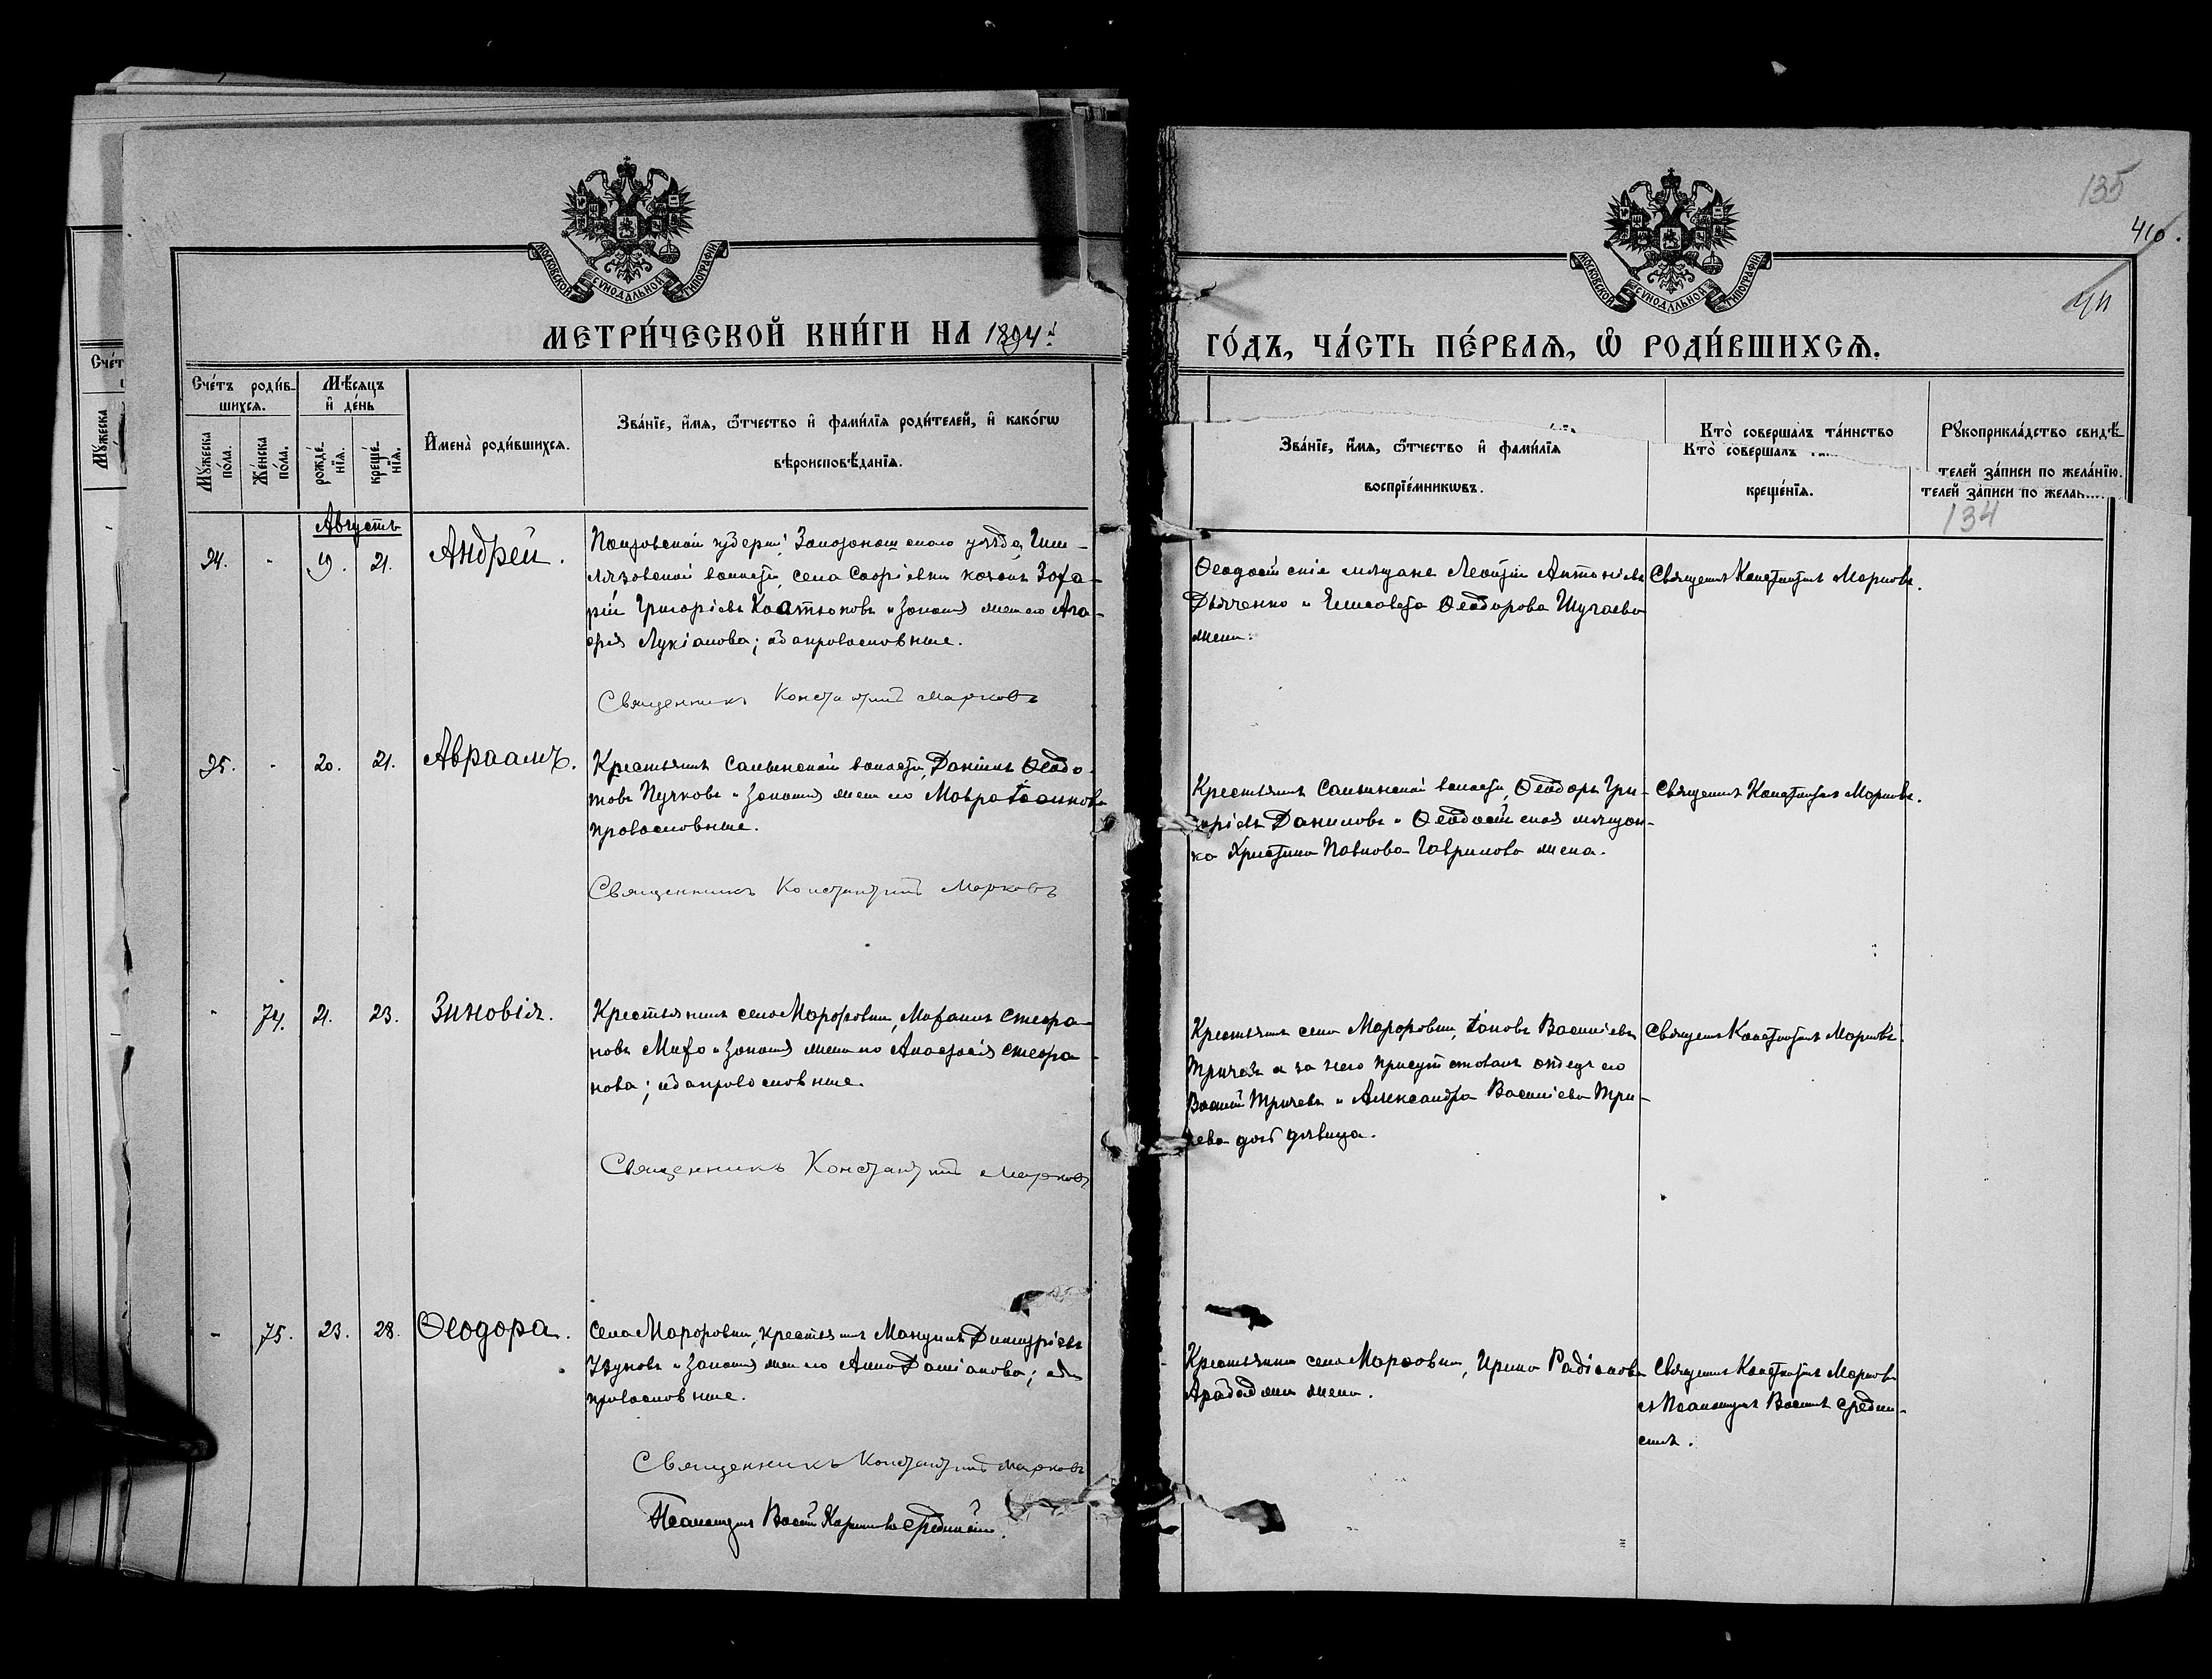 135
410.
411
МОСКОВСКОЙ СѴНОДАЛЬНОЙ ТИПОГРАФІИ
МОСКОВСКОЙ СѴНОДАЛЬНОЙ ТИПОГРАФІИ
МЕТРИ́ЧЕСКОЙ КНИ́ГИ НА 1894:
ГО́ДЪ, ЧА́СТЬ ПЕ́РВАѦ, Ѽ РОДИ́ВШИХСѦ.
Сче́тъ роди́в-
шихсѧ.
Мѣ́сѧцъ
и҆ де́нь
Мꙋ́жеска
по́ла.
Же́нска
по́ла.
рожде́-
нїѧ.
креще́-
нїѧ.
И҆мена̀ роди́вшихсѧ.
Зва́нїе, и҆́мѧ, ѻ҆́тчество и҆ фами́лїѧ роди́телей, и҆ како́гѡ
вѣроисповѣ́данїѧ.
Зва́нїе, и҆́мѧ, ѻ҆́тчество и҆ фами́лїѧ
воспрїе́мникѡвъ.
Кто̀ соверша́лъ та́инство
Кто̀ соверша́лъ
креще́нїѧ.
Рꙋкоприкла́дство свидѣ́-
телей за́писи по жела́нїю.
телей за́писи по жела
134
Августъ
94. - 19. 21. Андрей.
Полтовской губерніи Золотоношскаго уѣзда, Гель-
мязовской волости, села Софіевки козакъ Заха-
рій Григорьевъ Костюковъ и законная жена его Ага-
фія Лукіанова; оба православные.
Священникъ Константинъ Марковъ
Ѳеодосійскіе мѣщане Леонтій Антоніевъ
Дьяченко и Елисавета Ѳеодорова Шугаева
жена.
Священникъ Константинъ Марковъ.
95. - 20. 21. Авраамъ.
Крестьянинъ Салынской волости, Даніилъ Ѳеодо-
товъ Пучковъ и законная жена его Мавра Іоаннова
православные.
Священникъ Константинъ Марковъ
Крестьянинъ Салынской волости, Ѳеодоръ Гри-
горіевъ Даниловъ и Ѳеодосійская мѣщан-
ка Христина Павлова Гаврилова жена.
Священникъ Константинъ Марковъ.
- 74. 21. 23. Зиновія.
Крестьянинъ села Марфовки, Стефа-
новъ и законная жена его Анастасія Стефа-
нова; оба православные.
Священникъ Константинъ Марковъ
Крестьянинъ села Марфовки, Іаковъ Василіевъ
Тричевъ а за него присутствовалъ отецъ его
Василій Тричевъ и Александра Василіева Три-
чева дочь дѣвица.
Священникъ Константинъ Марковъ
- 75. 23. 28. Ѳеодора.
Села Марфовки, крестьянинъ Мануилъ Димитріевъ
Узуновъ и законная жена его Анна Даміанова; оба
православные.
Священникъ Константинъ Марковъ
Псаломщикъ Василій
Крестьянка села Марфовки, Ирина Радіонова
жена.
Священникъ Константинъ Марковъ
съ Псаломщикомъ Василіемъ